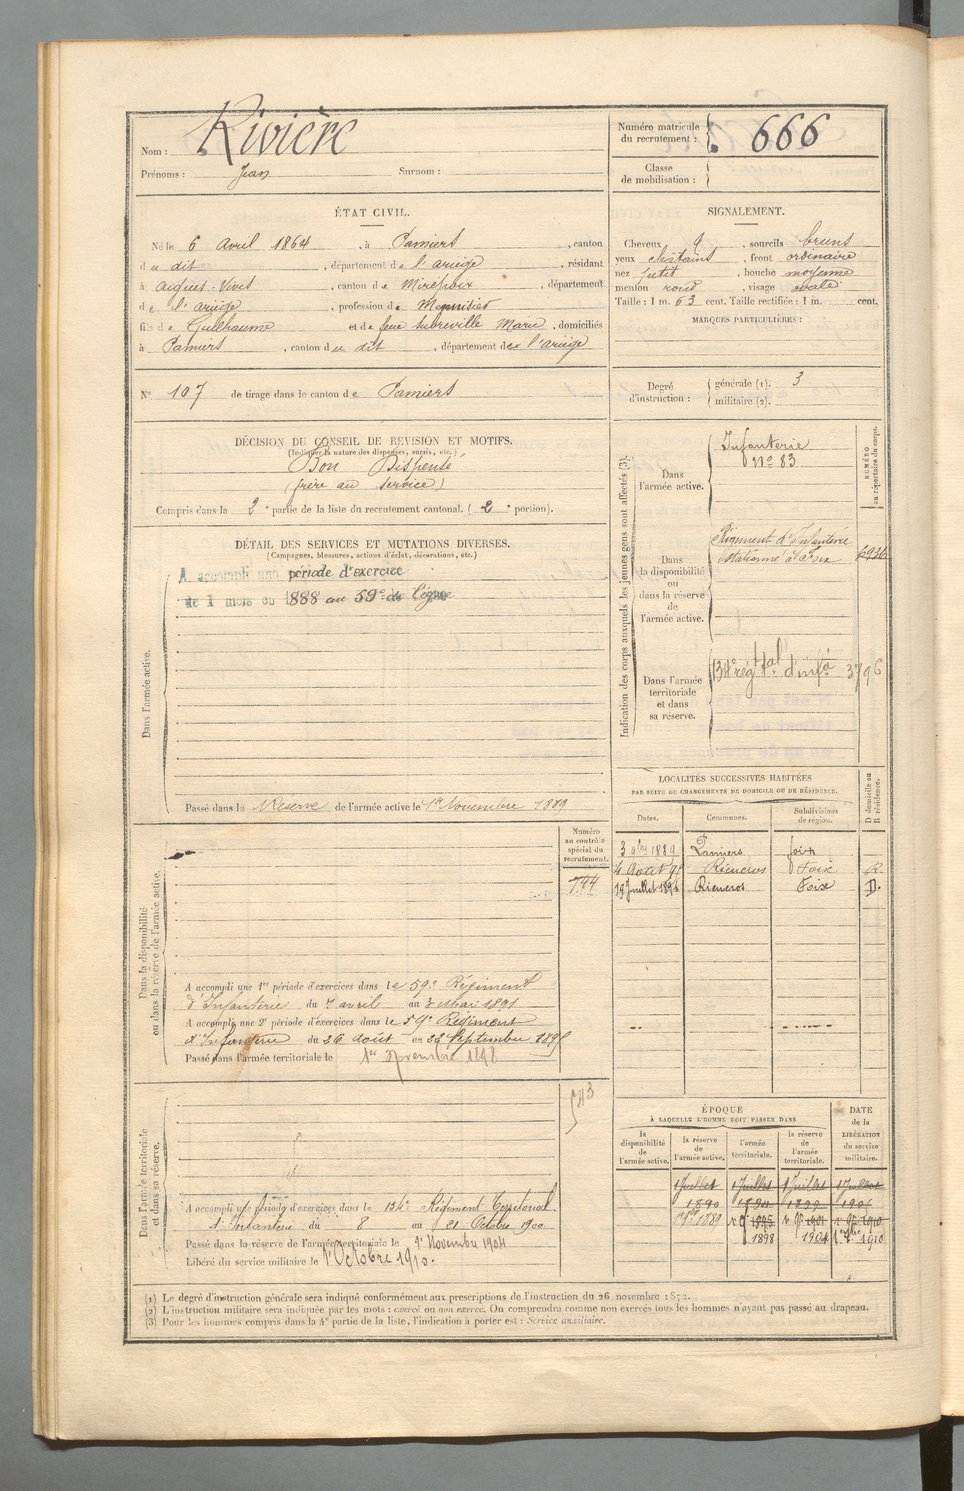 Nom : Rivière
Prénoms : Jean Surnom :
Numéro matricule du recrutement : 666
Classe de mobilisation :
ÉTAT CIVIL.
Né le 6 Avril 1864, à Pamiers, canton
du dit, département de l'ariège, résidant
à aigues-Vives, canton de Mirepoix, département
de l'ariège, profession de
fils de Guilhaume et de feue Subreville Marie, domiciliés
à Pamiers, canton du dit, département de l'ariège
SIGNALEMENT.
Cheveux, sourcils bruns
yeux chatains, front ordinaire
nez petit, bouche moyenne
menton rond, visage ovale
Taille : 1 m. 63 cent. Taille rectifiée : 1 m. cent.
MARQUES PARTICULIÈRES :
N° 107 de tirage dans le canton de Pamiers
Degré d'instruction : générale (1). 3
militaire (2).
DÉCISION DU CONSEIL DE REVISION ET MOTIFS.
(Indiquer la nature des dispenses, sursis, etc.)
Bon Dispensé
(frère au service)
Compris dans la 2e partie de la liste du recrutement cantonal. (2e portion).
DÉTAIL DES SERVICES ET MUTATIONS DIVERSES.
(Campagnes, blessures, actions d'éclat, décorations, etc.)
Dans l'armée active.
A accompli une période d'exercice
de 1 mois en 1888 au 59e de ligne
Passé dans la Réserve de l'armée active le 1er Novembre 1889
Indication des corps auxquels les jeunes gens sont affectés (3).
NUMÉRO au répertoire du corps.
Dans l'armée active.
Infanterie
N° 83
Dans la disponibilité ou dans la réserve de l'armée active.
Régiment d'Infanterie
stationné à Foix 6936
Dans l'armée territoriale et dans sa réserve.
134e régt tal d'infie 3796
LOCALITÉS SUCCESSIVES HABITÉES
PAR SUITE DE CHANGEMENTS DE DOMICILE OU DE RÉSIDENCE.
Dates. Communes. Subdivisions de région. D domicile ou R résidence.
3 1889 Pamiers foix
4 Août 9 Rieucros Foix R.
19 Juillet 189 Rieucros Foix D.
Dans la disponibilité ou dans la réserve de l'armée active.
Numéro au contrôle spécial du recrutement.
744
A accompli une 1re période d'exercices dans le 59e Régiment
d'Infanterie du 7 avril au 3 Mai 1891
A accompli une 2e période d'exercices dans le 59e Régiment
d'Infanterie du 26 août au 22 Septembre 189
Passé dans l'armée territoriale le 1er Novembre 1898
Dans l'armée territoriale et dans sa réserve.
543
A accompli une période d'exercices dans le 134e Régiment Territorial
d'Infanterie du 8 au 21 Octobre 1900
Passé dans la réserve de l'armée territoriale le 1er Novembre 1904
Libéré du service militaire le 1er Octobre 1910.
ÉPOQUE
À LAQUELLE L'HOMME DOIT PASSER DANS
DATE de la LIBÉRATION du service militaire.
la disponibilité de l'armée active. la réserve de l'armée active. l'armée territoriale. la réserve de l'armée territoriale.
1 Juillet 1 Juillet 1 Juillet 1 Juillet
1890 1899
1889 1895 1901 1910
1898 1904 1910
(1) Le degré d'instruction générale sera indiqué conformément aux prescriptions de l'instruction du 26 novembre 1872.
(2) L'instruction militaire sera indiquée par les mots : exercé ou non exercé. On comprendra comme non exercés tous les hommes n'ayant pas passé au drapeau.
(3) Pour les hommes compris dans la 4e partie de la liste, l'indication à porter est : Service auxiliaire.